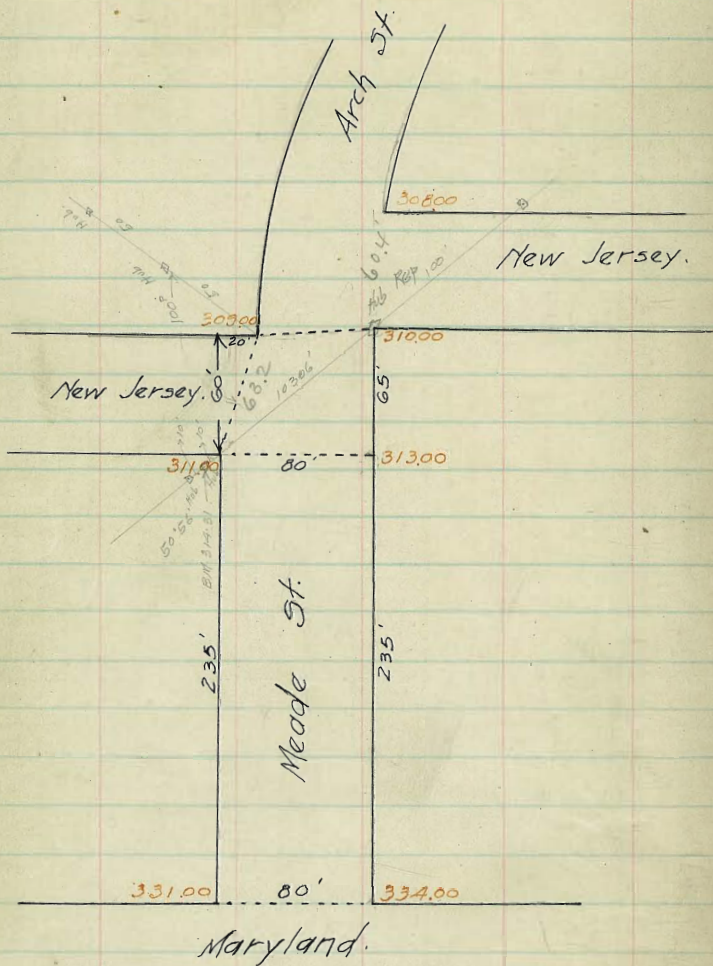 Arch St.
308.00
New Jersey.
60.4'
100'
60
Hub
60
Hub
309.00
20'
310.00
New Jersey.
60'
63.2
103.06'
65'
311.00
80'
313.00
BM 314.31
235'
Meade St.
235'
331.00
80'
334.00
Maryland.